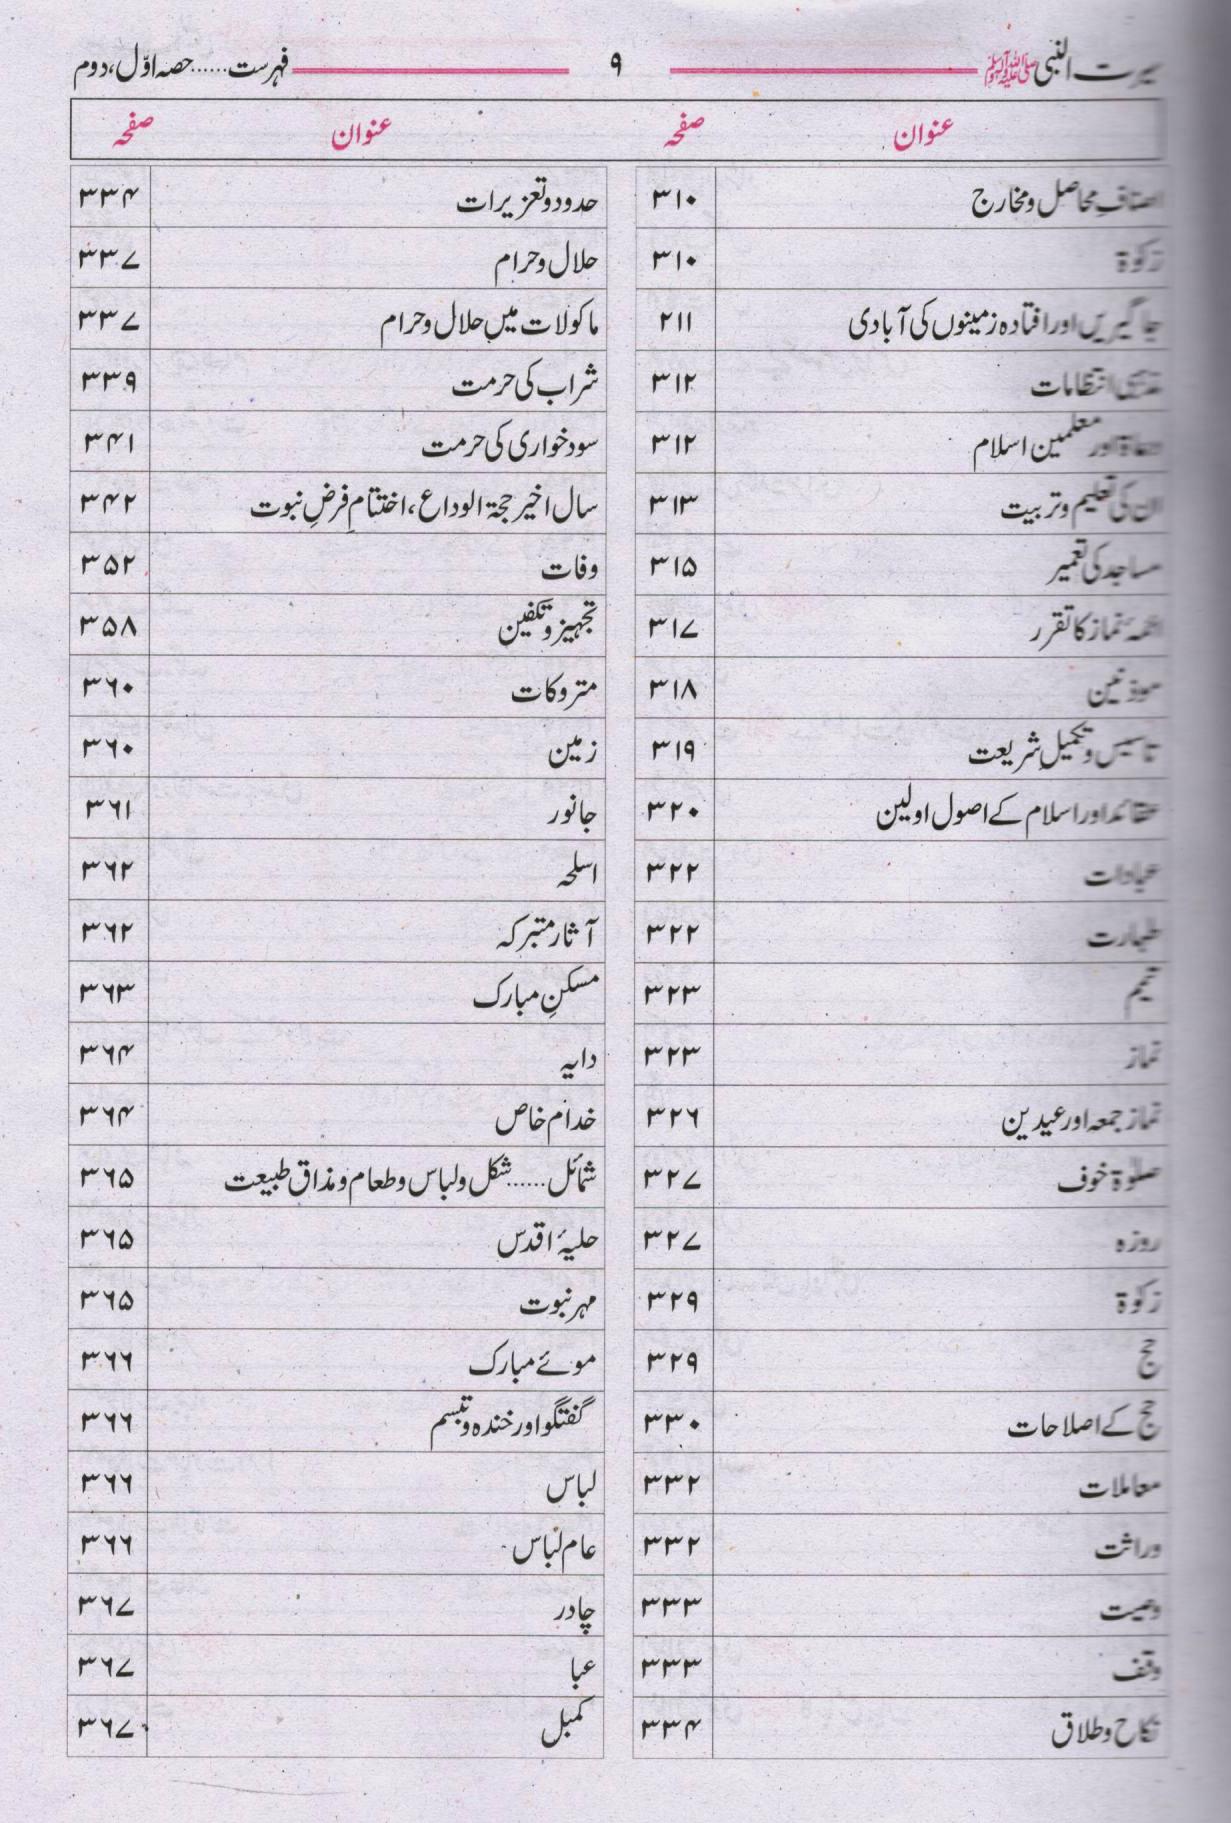 سیرت النبی ﷺ ۹ فہرست......حصہ اوّل، دوم
عنوان صفحہ عنوان صفحہ
اصنافِ محاصل و مخارج ۳۱۰
زکوٰۃ ۳۱۰
جاگیریں اور افتادہ زمینوں کی آبادی ۲۱۱
مذہبی انتظامات ۳۱۲
دعاۃ اور معلمین اسلام ۳۱۲
ان کی تعلیم و تربیت ۳۱۳
مساجد کی تعمیر ۳۱۵
ائمہ نماز کا تقرر ۳۱۷
موذنین ۳۱۸
تاسیس و تکمیلِ شریعت ۳۱۹
عقائد اور اسلام کے اصول اولین ۳۲۰
عبادات ۳۲۲
طہارت ۳۲۲
تیمم ۳۲۳
نماز ۳۲۳
نماز جمعہ اور عیدین ۳۲۶
صلوٰۃ خوف ۳۲۷
روزہ ۳۲۷
زکوٰۃ ۳۲۹
حج ۳۲۹
حج کے اصلاحات ۳۳۰
معاملات ۳۳۲
وراثت ۳۳۲
وصیت ۳۳۳
وقف ۳۳۳
نکاح و طلاق ۳۳۴
حدود و تعزیرات ۳۳۴
حلال و حرام ۳۳۷
ماکولات میں حلال و حرام ۳۳۷
شراب کی حرمت ۳۳۹
سود خواری کی حرمت ۳۴۱
سال اخیر حجۃ الوداع، اختتامِ فرضِ نبوت ۳۴۲
وفات ۳۵۲
تجہیز و تکفین ۳۵۸
متروکات ۳۶۰
زمین ۳۶۰
جانور ۳۶۱
اسلحہ ۳۶۲
آثار متبرکہ ۳۶۲
مسکنِ مبارک ۳۶۳
دایہ ۳۶۴
خدام خاص ۳۶۴
شمائل......شکل و لباس و طعام و مذاق طبیعت ۳۶۵
حلیۂ اقدس ۳۶۵
مہر نبوت ۳۶۵
موئے مبارک ۳۶۶
گفتگو اور خندہ و تبسم ۳۶۶
لباس ۳۶۶
عام لباس ۳۶۶
چادر ۳۶۷
عبا ۳۶۷
کمبل ۳۶۷